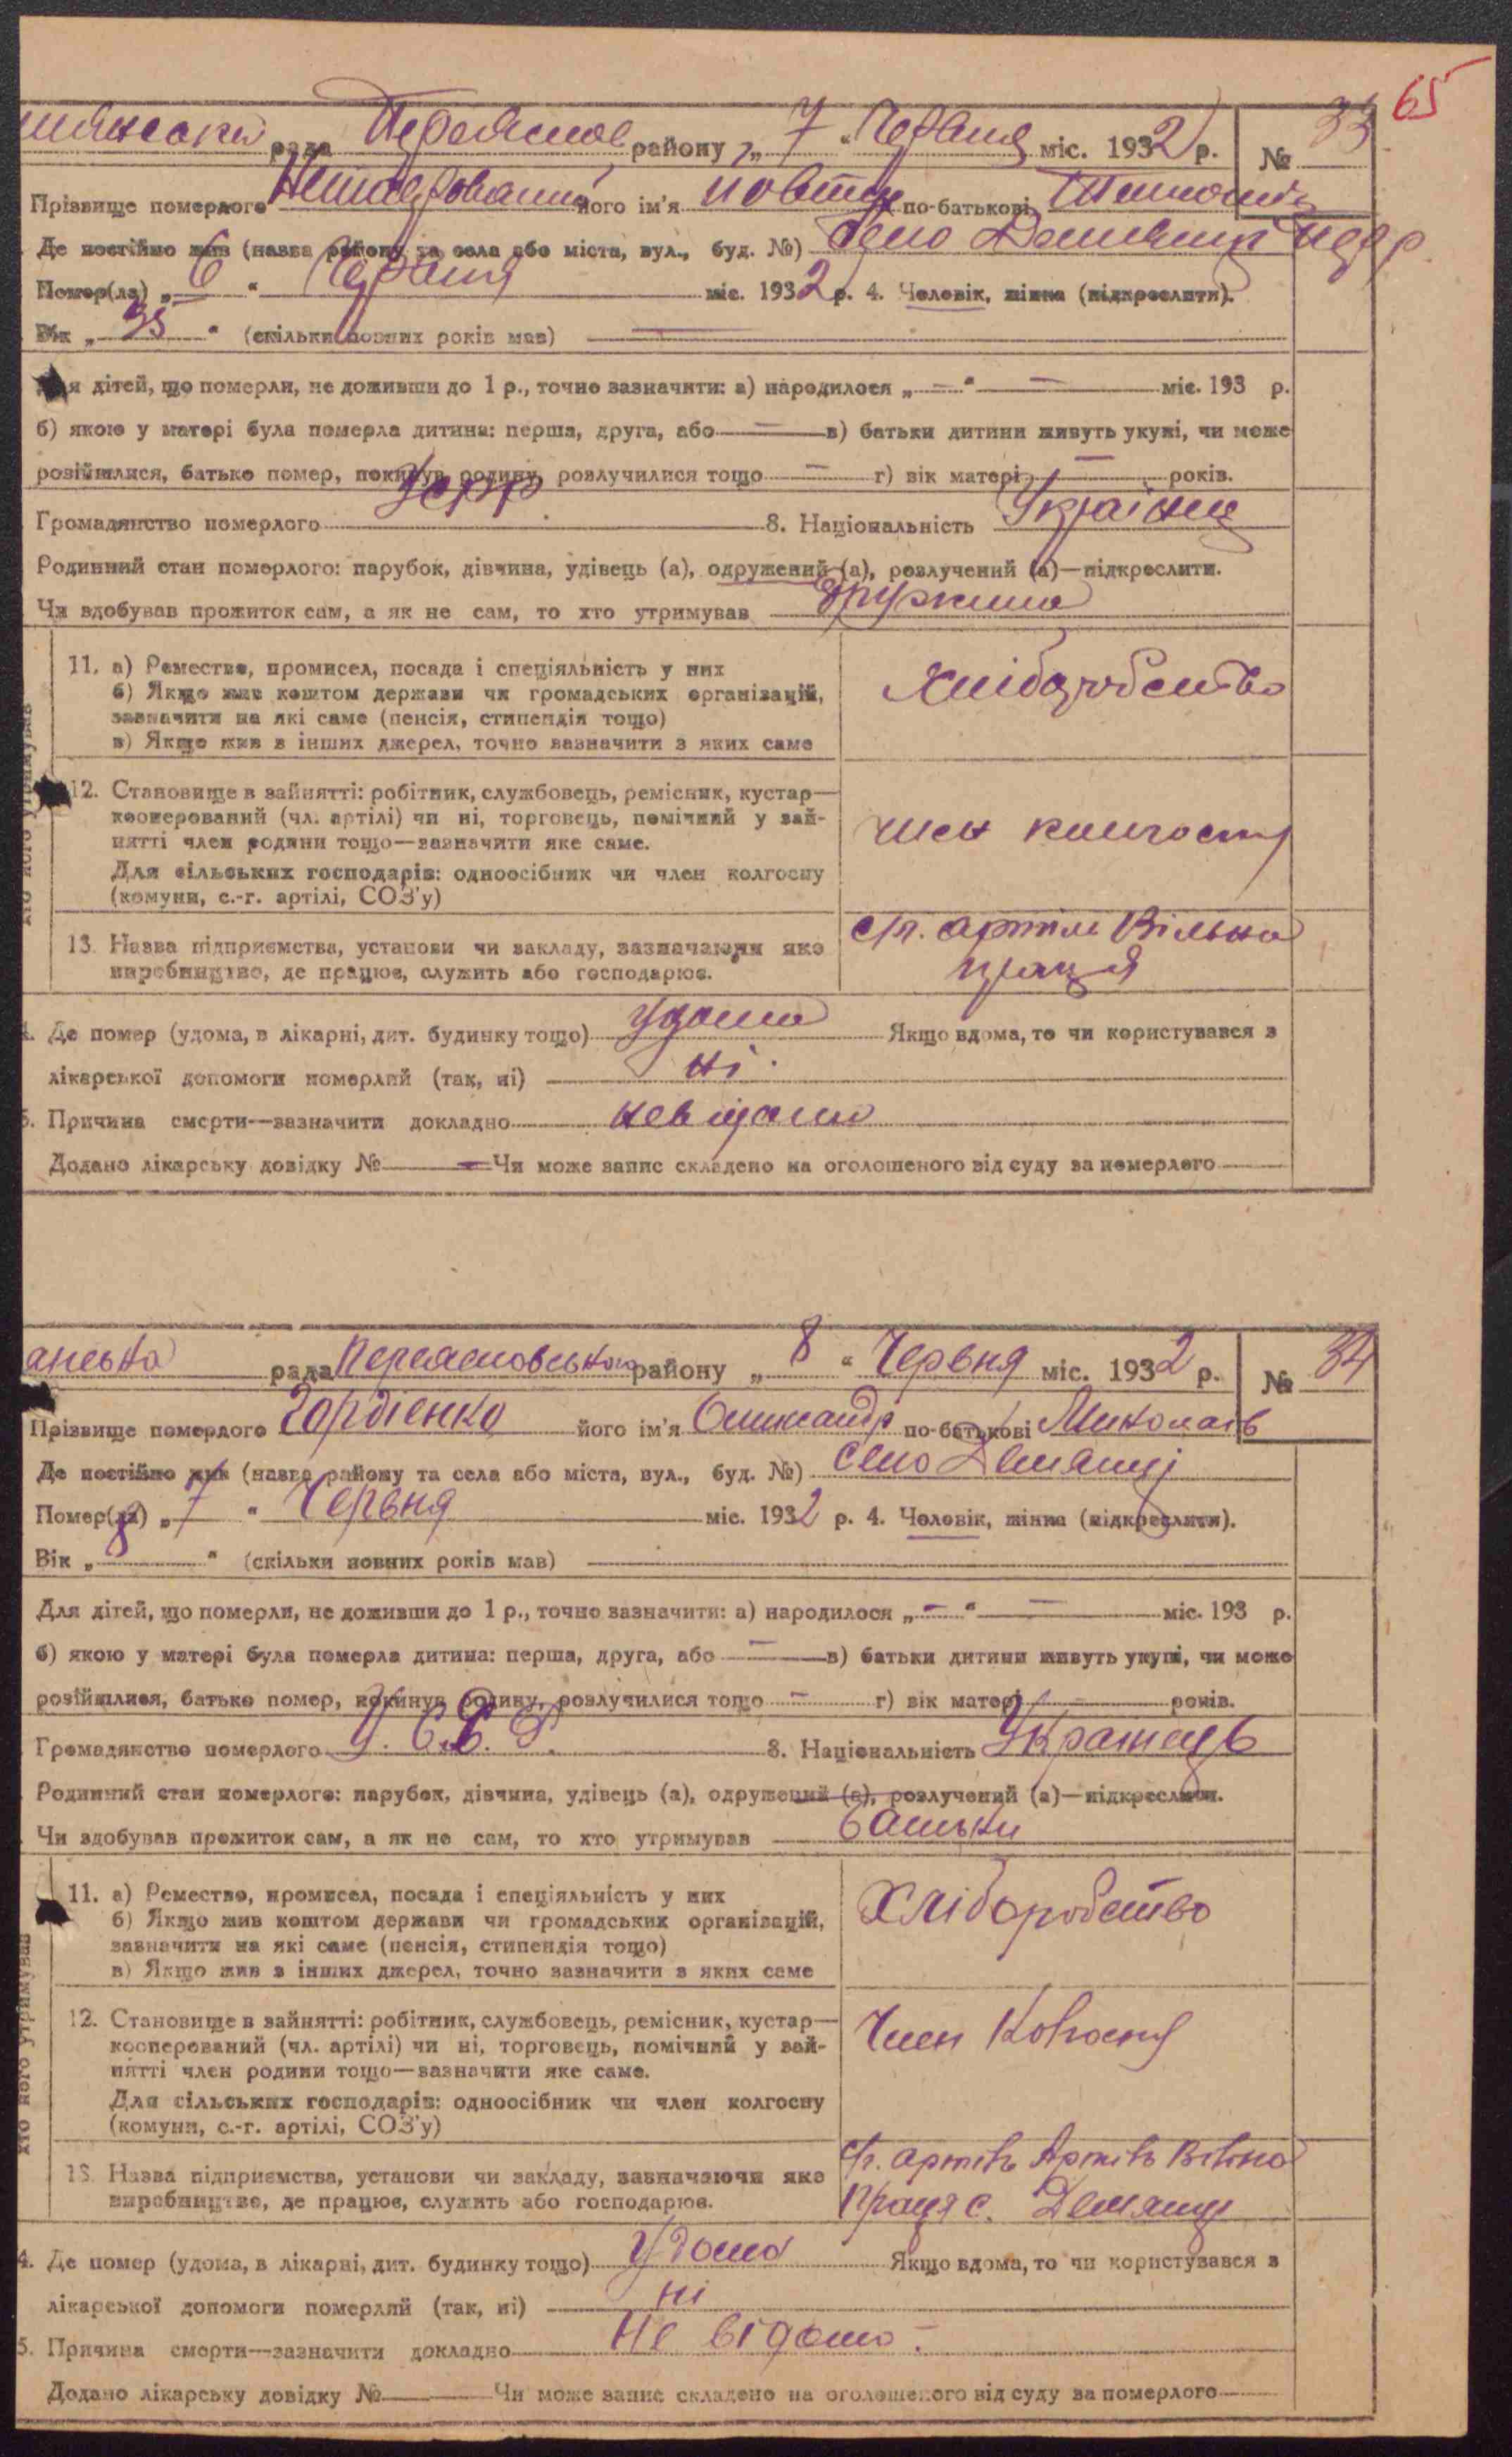 65
рада району „ 7 “ Червня міс. 1932 р. № 33
Прізвище померлого його ім'я по-батькові
Де постійно жив (назва району та села або міста, вул., буд. №) село Демянці
Помер(ла) „ 6 “ Червня міс. 1932 р. 4. Чоловік, жінка (підкреслити).
Вік „ 35 “ (скільки повних років мав)
Для дітей, що померли, не доживши до 1 р., точно зазначити: а) народилося „ — “ — міс. 193 р.
б) якою у матері була померла дитина: перша, друга, або — в) батьки дитини живуть укупі, чи може
розійшлися, батько помер, покинув родину, розлучилися тощо — г) вік матері — років.
Громадянство померлого УСРР 8. Національність Українец
Родинний стан померлого: парубок, дівчина, удівець (а), одружений (а), розлучений (а)—підкреслити.
Чи здобував прожиток сам, а як не сам, то хто утримував
11. а) Ремество, промисел, посада і спеціяльність у них
б) Якщо жив коштом держави чи громадських організацій,
зазначити на які саме (пенсія, стипендія тощо)
в) Якщо жив з інших джерел, точно зазначити з яких саме
Хліборобство
12. Становище в зайнятті: робітник, службовець, ремісник, кустар—
кооперований (чл. артілі) чи ні, торговець, помічний у зай-
нятті член родини тощо—зазначити яке саме.
Для сільських господарів: одноосібник чи член колгоспу
(комуни, с.-г. артілі, СОЗ'у)
член колгоспу
13. Назва підприємства, установи чи закладу, зазначаючи яке
виробництво, де працює, служить або господарює.
с/г. артіль Вільна
праця
Де помер (удома, в лікарні, дит. будинку тощо) удома Якщо вдома, то чи користувався з
лікарської допомоги померлий (так, ні) ні.
5. Причина смерти—зазначити докладно
Додано лікарську довідку № — Чи може запис складено на оголошеного від суду за померлого
анська рада Переясловського району „ 8 “ Червня міс. 1932 р. № 34
Прізвище померлого Гордієнко його ім'я Олександр по-батькові Миколаїв
Де постійно жив (назва району та села або міста, вул., буд. №) село Демянці
Помер(ла) „ 7 “ Червня міс. 1932 р. 4. Чоловік, жінка (підкреслити).
Вік „ 8 “ (скільки повних років мав)
Для дітей, що померли, не доживши до 1 р., точно зазначити: а) народилося „ — “ — міс. 193 р.
б) якою у матері була померла дитина: перша, друга, або — в) батьки дитини живуть укупі, чи може
розійшлися, батько помер, покинув родину, розлучилися тощо — г) вік матері — років.
Громадянство померлого У.С.Р.Р. 8. Національність
Родинний стан померлого: парубок, дівчина, удівець (а), одружений (а), розлучений (а)—підкреслити.
Чи здобував прожиток сам, а як не сам, то хто утримував батьки
11. а) Ремество, промисел, посада і спеціяльність у них
б) Якщо жив коштом держави чи громадських організацій,
зазначити на які саме (пенсія, стипендія тощо)
в) Якщо жив з інших джерел, точно зазначити з яких саме
Хліборобство
12. Становище в зайнятті: робітник, службовець, ремісник, кустар—
кооперований (чл. артілі) чи ні, торговець, помічний у зай-
нятті член родини тощо—зазначити яке саме.
Для сільських господарів: одноосібник чи член колгоспу
(комуни, с.-г. артілі, СОЗ'у)
Член Колгоспу
13. Назва підприємства, установи чи закладу, зазначаючи яке
виробництво, де працює, служить або господарює.
с/г. артіль Артіль Вільна
Праця с. Демянці
4. Де помер (удома, в лікарні, дит. будинку тощо) Удома Якщо вдома, то чи користувався з
лікарської допомоги померлий (так, ні) ні
5. Причина смерти—зазначити докладно Не відомо.
Додано лікарську довідку № Чи може запис складено на оголошеного від суду за померлого